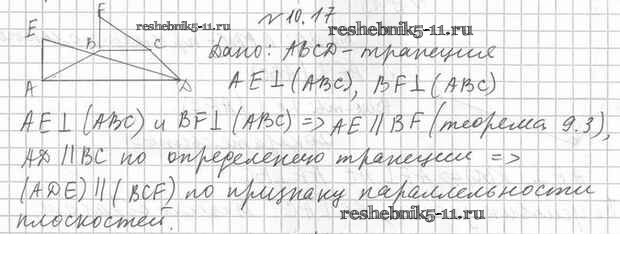 №10.17
reshebnik5-11.ru
F
E
B
C
A
D
Дано: ABCD - трапеция
reshebnik5-11.ru
AE⊥(ABC), BF⊥(ABC)
AE⊥(ABC) и BF⊥(ABC) => AE∥BF (теорема 9.3),
AD∥BC по определению трапеции =>
(ADE)∥(BCF) по признаку параллельности
плоскостей.
reshebnik5-11.ru